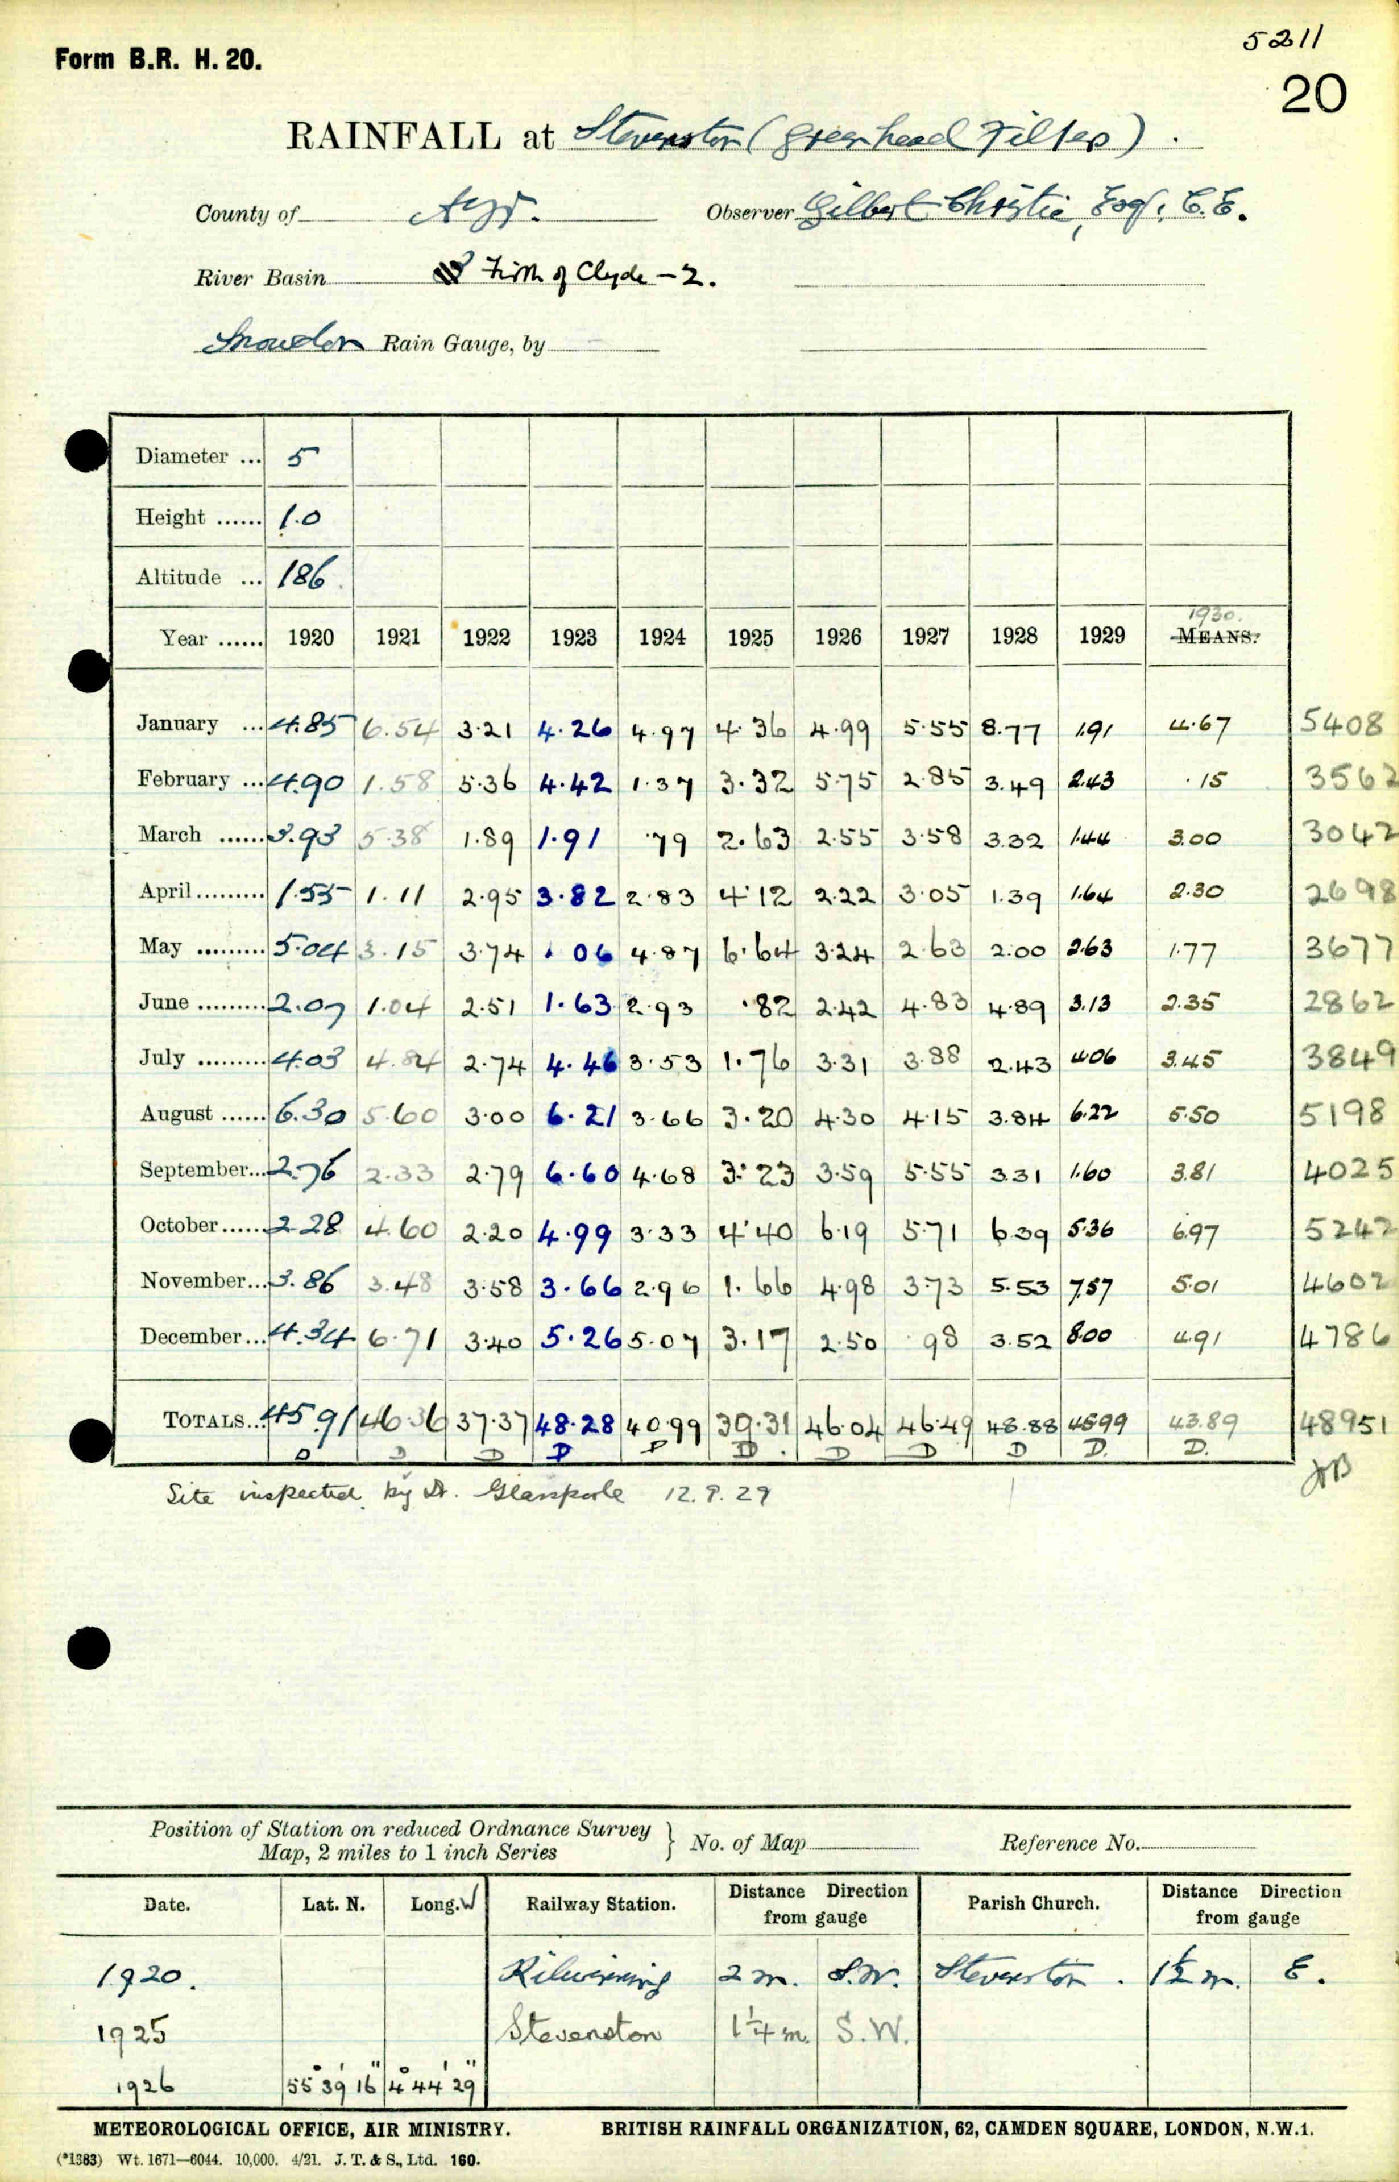 5211
Form B.R. H. 20.
20
RAINFALL at Stevenston (Greenhead Filters) .
County of Ayr. Observer Gilbert Christie, Esq., C.E.
River Basin Firth of Clyde - 2.
Snowdon Rain Gauge, by
Diameter ... 5
Height ...... 1.0
Altitude ... 186
1930.
Year ...... 1920 1921 1922 1923 1924 1925 1926 1927 1928 1929 MEANS.
January ... 4.85 6.54 3.21 4.26 4.97 4.36 4.99 5.55 8.77 1.91 4.67 5408
February ... 4.90 1.58 5.36 4.42 1.37 3.32 5.75 2.85 3.49 2.43 .15 3562
March ...... 3.93 5.38 1.89 1.91 .79 2.63 2.55 3.58 3.32 1.44 3.00 3042
April ......... 1.55 1.11 2.95 3.82 2.83 4.12 2.22 3.05 1.39 1.64 2.30 2698
May ......... 5.04 3.15 3.74 1.06 4.87 6.64 3.24 2.63 2.00 2.63 1.77 3677
June ......... 2.07 1.04 2.51 1.63 2.93 .82 2.42 4.83 4.89 3.13 2.35 2862
July ......... 4.03 4.84 2.74 4.46 3.53 1.76 3.31 3.88 2.43 4.06 3.45 3849
August ...... 6.30 5.60 3.00 6.21 3.66 3.20 4.30 4.15 3.84 6.22 5.50 5198
September... 2.76 2.33 2.79 6.60 4.68 3.23 3.59 5.55 3.31 1.60 3.81 4025
October...... 2.28 4.60 2.20 4.99 3.33 4.40 6.19 5.71 6.39 5.36 6.97 5242
November... 3.86 3.48 3.58 3.66 2.96 1.66 4.98 3.73 5.53 7.57 5.01 4602
December... 4.34 6.71 3.40 5.26 5.07 3.17 2.50 .98 3.52 8.00 4.91 4786
TOTALS... 45.91 46.36 37.37 48.28 40.99 39.31 46.04 46.49 48.88 45.99 43.89 48951
D D D D D D D D D D. D.
Site inspected by Dr. Glasspoole 12.9.29
Position of Station on reduced Ordnance Survey Map, 2 miles to 1 inch Series } No. of Map Reference No.
Date. Lat. N. Long. W Railway Station. Distance Direction from gauge Parish Church. Distance Direction from gauge
1920. Kilwinning 2 m. S.W. Stevenston . 1½ m. E.
1925 Stevenston 1¼ m. S.W.
1926 55° 39' 16" 4° 44' 29"
METEOROLOGICAL OFFICE, AIR MINISTRY. BRITISH RAINFALL ORGANIZATION, 62, CAMDEN SQUARE, LONDON, N.W.1.
(*1383) Wt. 1671—6044. 10,000. 4/21. J. T. & S., Ltd. 160.